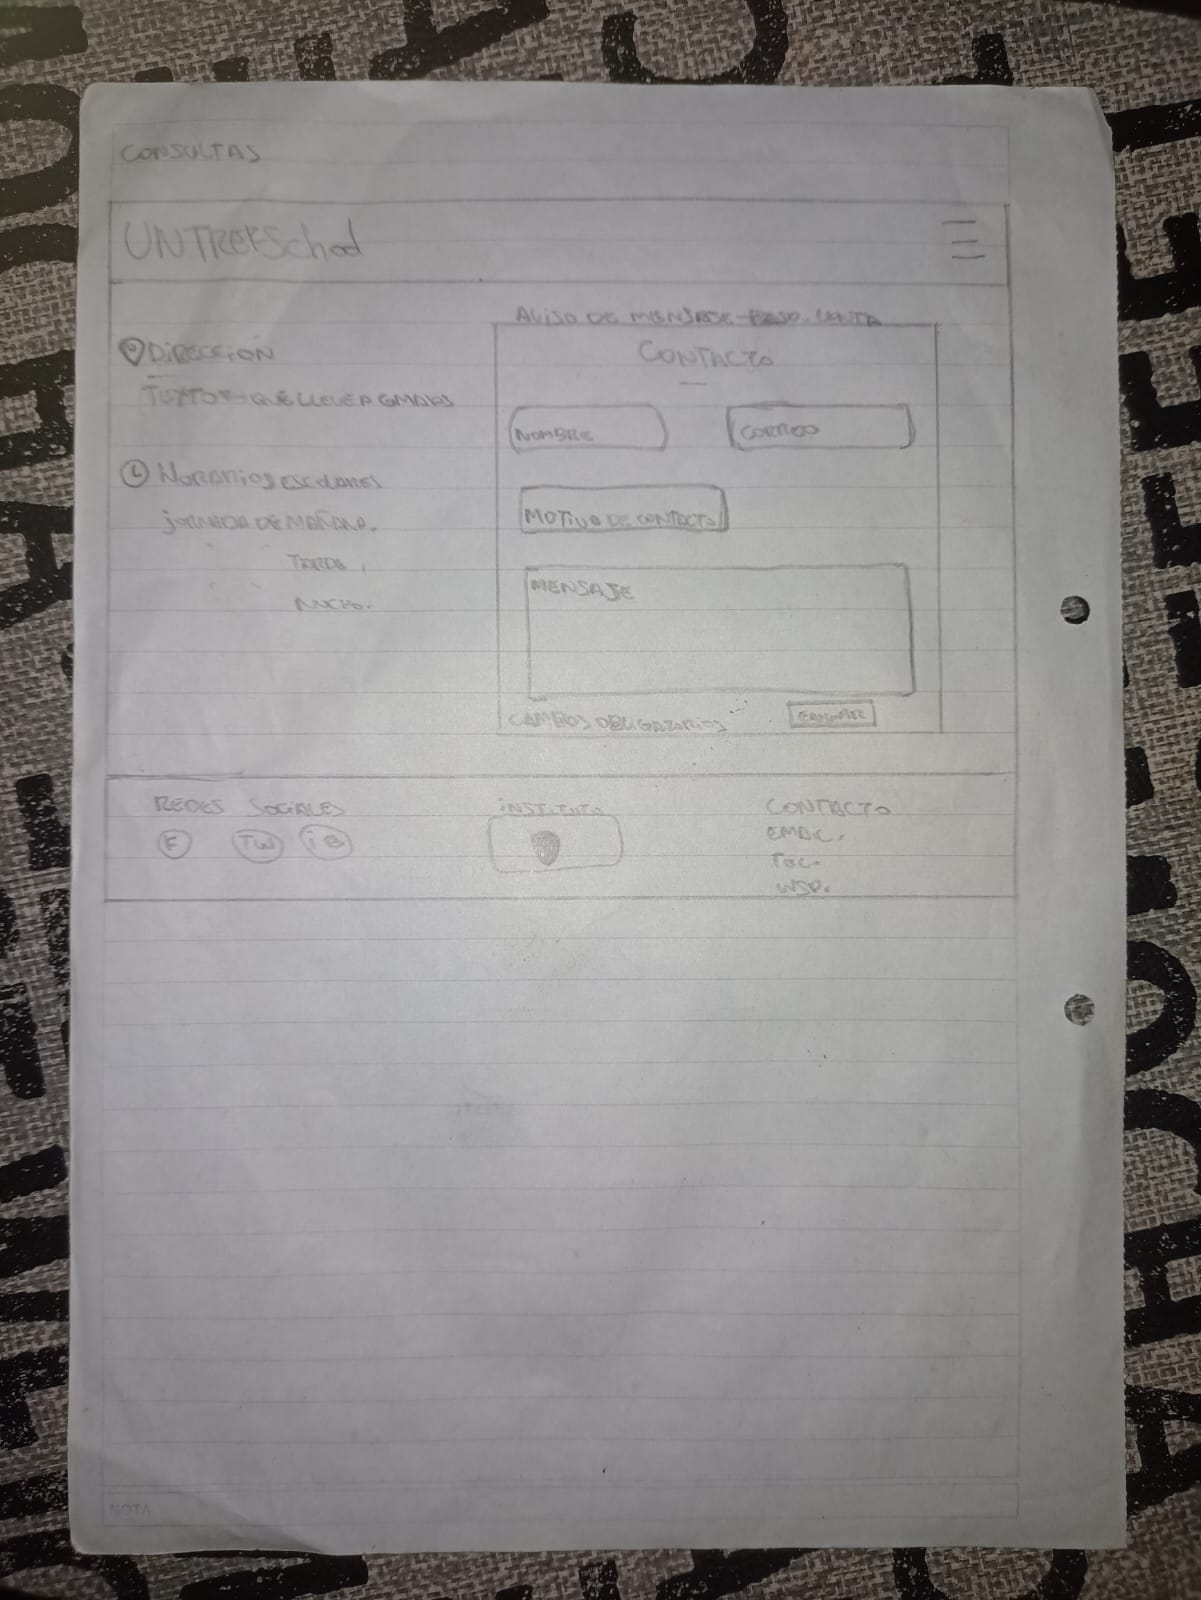 CONSULTAS
UNTREFSchool
DIRECCIÓN
TEXTO QUE LLEVE A GMAPS
Horarios escolares
JORNADA DE MAÑANA.
TARDE.
NOCHE.
AVISO DE MENSAJE
CONTACTO
NOMBRE
CORREO
MOTIVO DE CONTACTO
MENSAJE
CAMPOS OBLIGATORIOS
REDES SOCIALES
F TW IG
INSTITUTO
CONTACTO
EMAIL.
TEL.
WSP.
NOTA